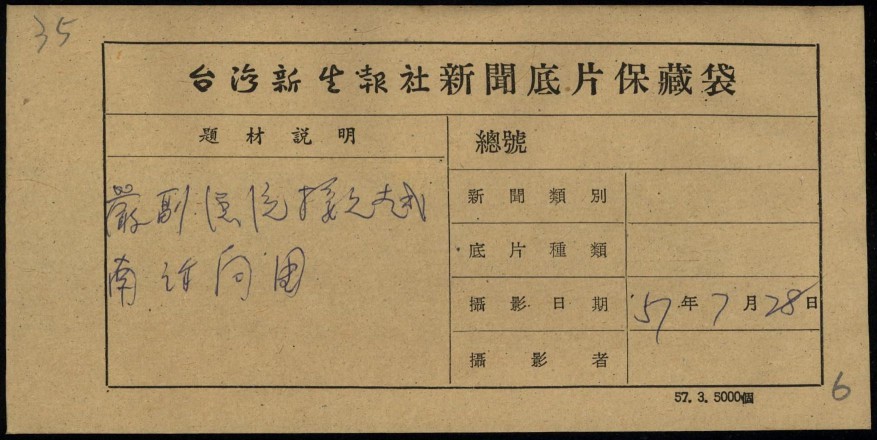 35
台湾新生報社新聞底片保藏袋
題材說明
總號
嚴副總統接見越
南訪問團
新聞類別
底片種類
攝影日期 57年7月28日
攝影者
57.3.5000個
6